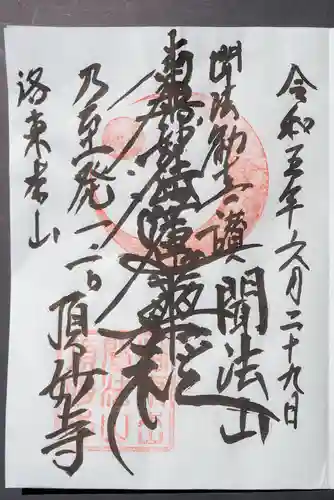 令和五年六月二十九日
聞法山
聞法勧喜讃
南無妙法蓮華経
乃至発一言
洛東本山
頂妙寺